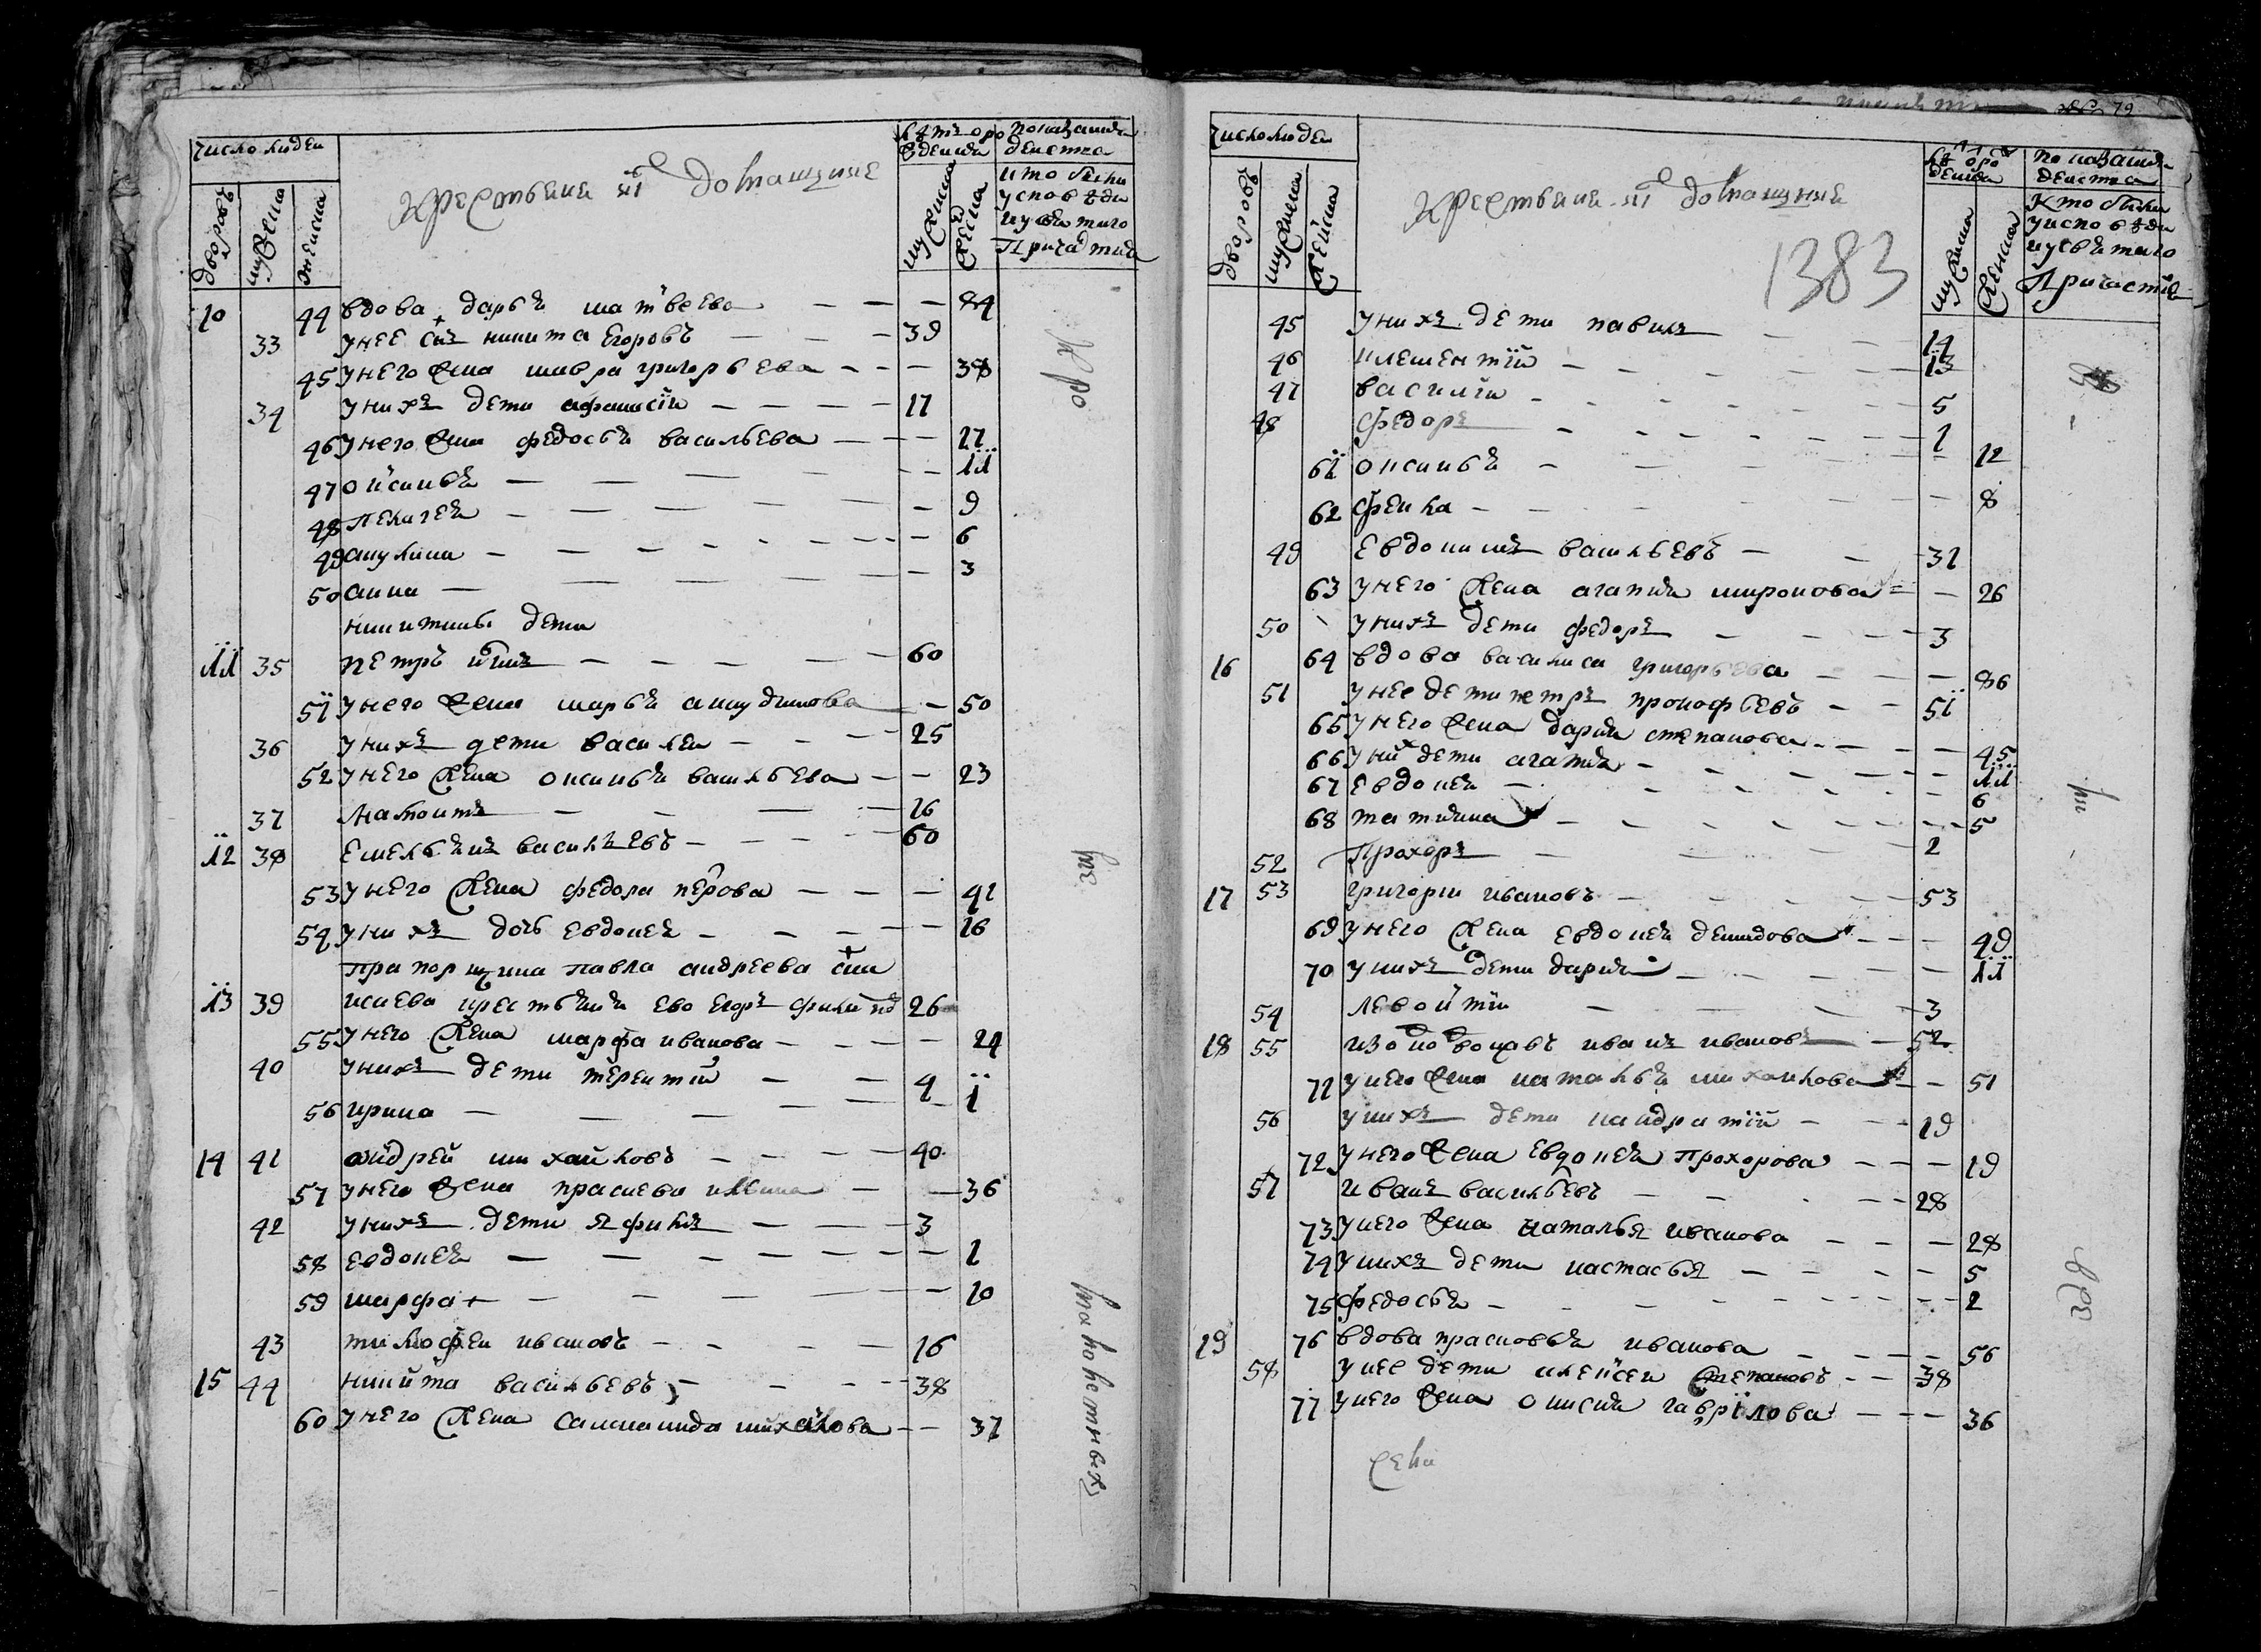 число людеи
дворовъ
мужеска
женска
крестьяне и домашние
мужеска
женска
показания
деиства
кто были
у исповеди
и у святаго
Причастия
10 44 вдова дарья матвеева — — — 84
33 у нее сынъ никита егоровъ — — — 39
45 у него жена мавра григорьева — — — 38
34 у нихъ дети афанасїи — — — — 17
46 у него жена федосья васильева — — — 27
47 оксинья — — — — — 11
48 пелагея — — — — — 9
49 акулина — — — — — 6
50 анна — — — — 3
никитины дети
11 35 петръ — — — — — 60
51 у него жена марья — — 50
36 у нихъ дети василеи — — — 25
52 у него жена оксинья васильева — — 23
37 — — — — 16
12 38 емельянъ васильевъ — — — — 60
53 у него жена федора петрова — — — 41
54 у нихъ дочь евдокея — — — — — 16
прапорщика павла андреева сына
13 39 исаева крестьяня ево егоръ 26
55 у него жена марфа иванова — — — — 24
40 у нихъ дети терентїй — — 4
56 ирина — — — — — 1
14 41 андрей михайловъ — — — — 40
57 у него жена прасковя — — 36
42 у нихъ дети — — — 3
58 евдокея — — — — — — — 1
59 марфа — — — — — — 10
43 тимофеи ивановъ — — — — 16
15 44 никита васильевъ — — — — 38
60 у него жена саламанида михайлова — — 37
79
число людеи
дворовъ
мужеска
женска
крестьяне и домашние
1383
мужеска
женска
показания
деиства
кто были
у исповеди
и у святаго
Причастия
45 у нихъ дети павилъ — — 14
46 клементїй — — — — — 13
47 василїи — — — — — 5
48 федоръ — — — — — — 1
61 оксинья — — — — — 12
62 фекла — — — — — 8
49 евдокимъ васильевъ — — 31
63 у него жена агапия миронова — — 26
50 у нихъ дети федоръ — — — 3
16 64 вдова василиса григорьева — — — 86
51 у нее дети петръ прокофьевъ — — 51
65 у него жена дария степанова — — — 45
66 у них дети агапия — — — — — 11
67 евдокея — — — — — 6
68 татияна — — — — — — 5
52 Прохоръ — — — — 2
17 53 григории ивановъ — — — — 53
69 у него жена евдокея демидова — — — 49
70 у нихъ дети дария — — — — — 11
54 — — — — 3
18 55 иванъ ивановъ — 52
71 у него жена наталья михаилова — — 51
56 у нихъ дети кандратїй — — 19
72 у него жена евдокея Прохорова — — — 19
57 иванъ васильевъ — — — — 28
73 у него жена наталья иванова — — — 28
74 у нихъ дети настасья — — — — 5
75 федосья — — — — — — — 2
19 76 вдова прасковья иванова — — — — 56
58 у нее дети алексеи степановъ — — 38
77 у него жена оксиня гаврїлова — — — 36